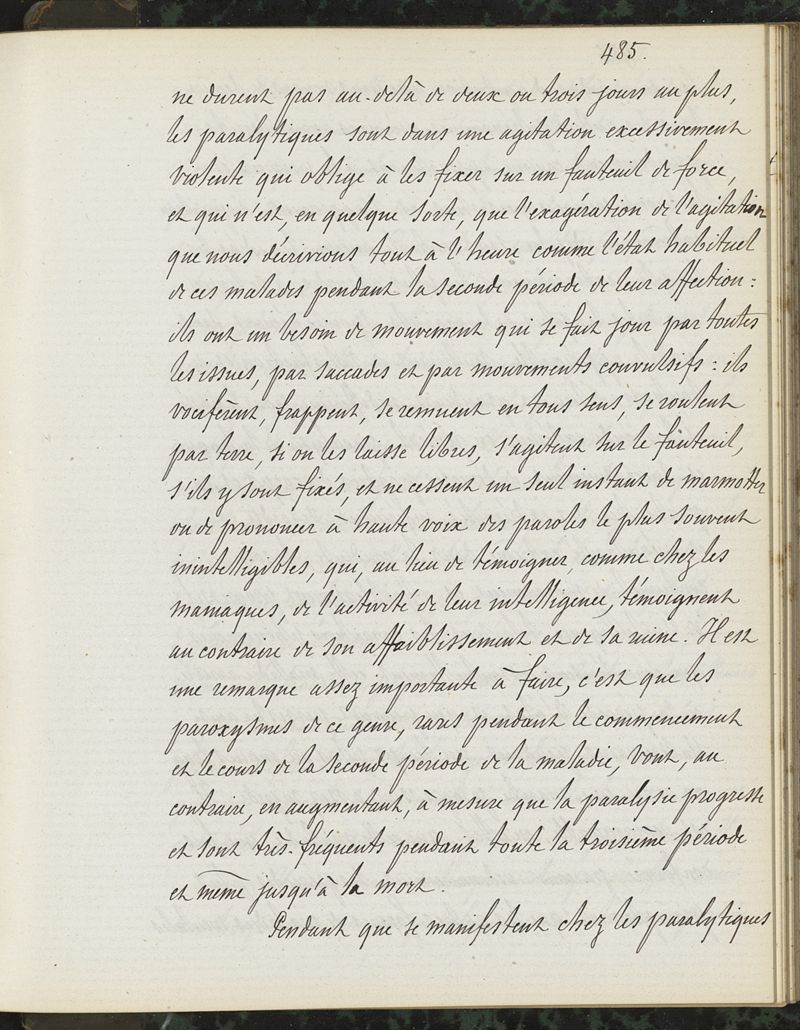 485.
ne durent pas au-delà de deux ou trois jours au plus,
les paralytiques sont dans une agitation excessivement
violente qui oblige à les fixer sur un fauteuil de force,
et qui n'est, en quelque sorte, que l'exagération de l'agitation
que nous décrivions tout à l'heure comme l'état habituel
de ces malades pendant la seconde période de leur affection :
ils ont un besoin de mouvement qui se fait jour par toutes
les issues, par saccades et par mouvements convulsifs : ils
vocifèrent, frappent, se remuent en tous sens, se roulent
par terre, si on les laisse libres, s'agitent sur le fauteuil,
s'ils y sont fixés, et ne cessent un seul instant de marmotter
ou de prononcer à haute voix des paroles le plus souvent
inintelligibles, qui, au lieu de témoigner, comme chez les
maniaques, de l'activité de leur intelligence, témoignent
au contraire de son affaiblissement et de sa ruine. Il est
une remarque assez importante à faire, c'est que les
paroxysmes de ce genre, rares pendant le commencement
et le cours de la seconde période de la maladie, vont, au
contraire, en augmentant, à mesure que la paralysie progresse
et sont très-fréquents pendant toute la troisième période
et même jusqu'à la mort.
Pendant que se manifestent chez les paralytiques